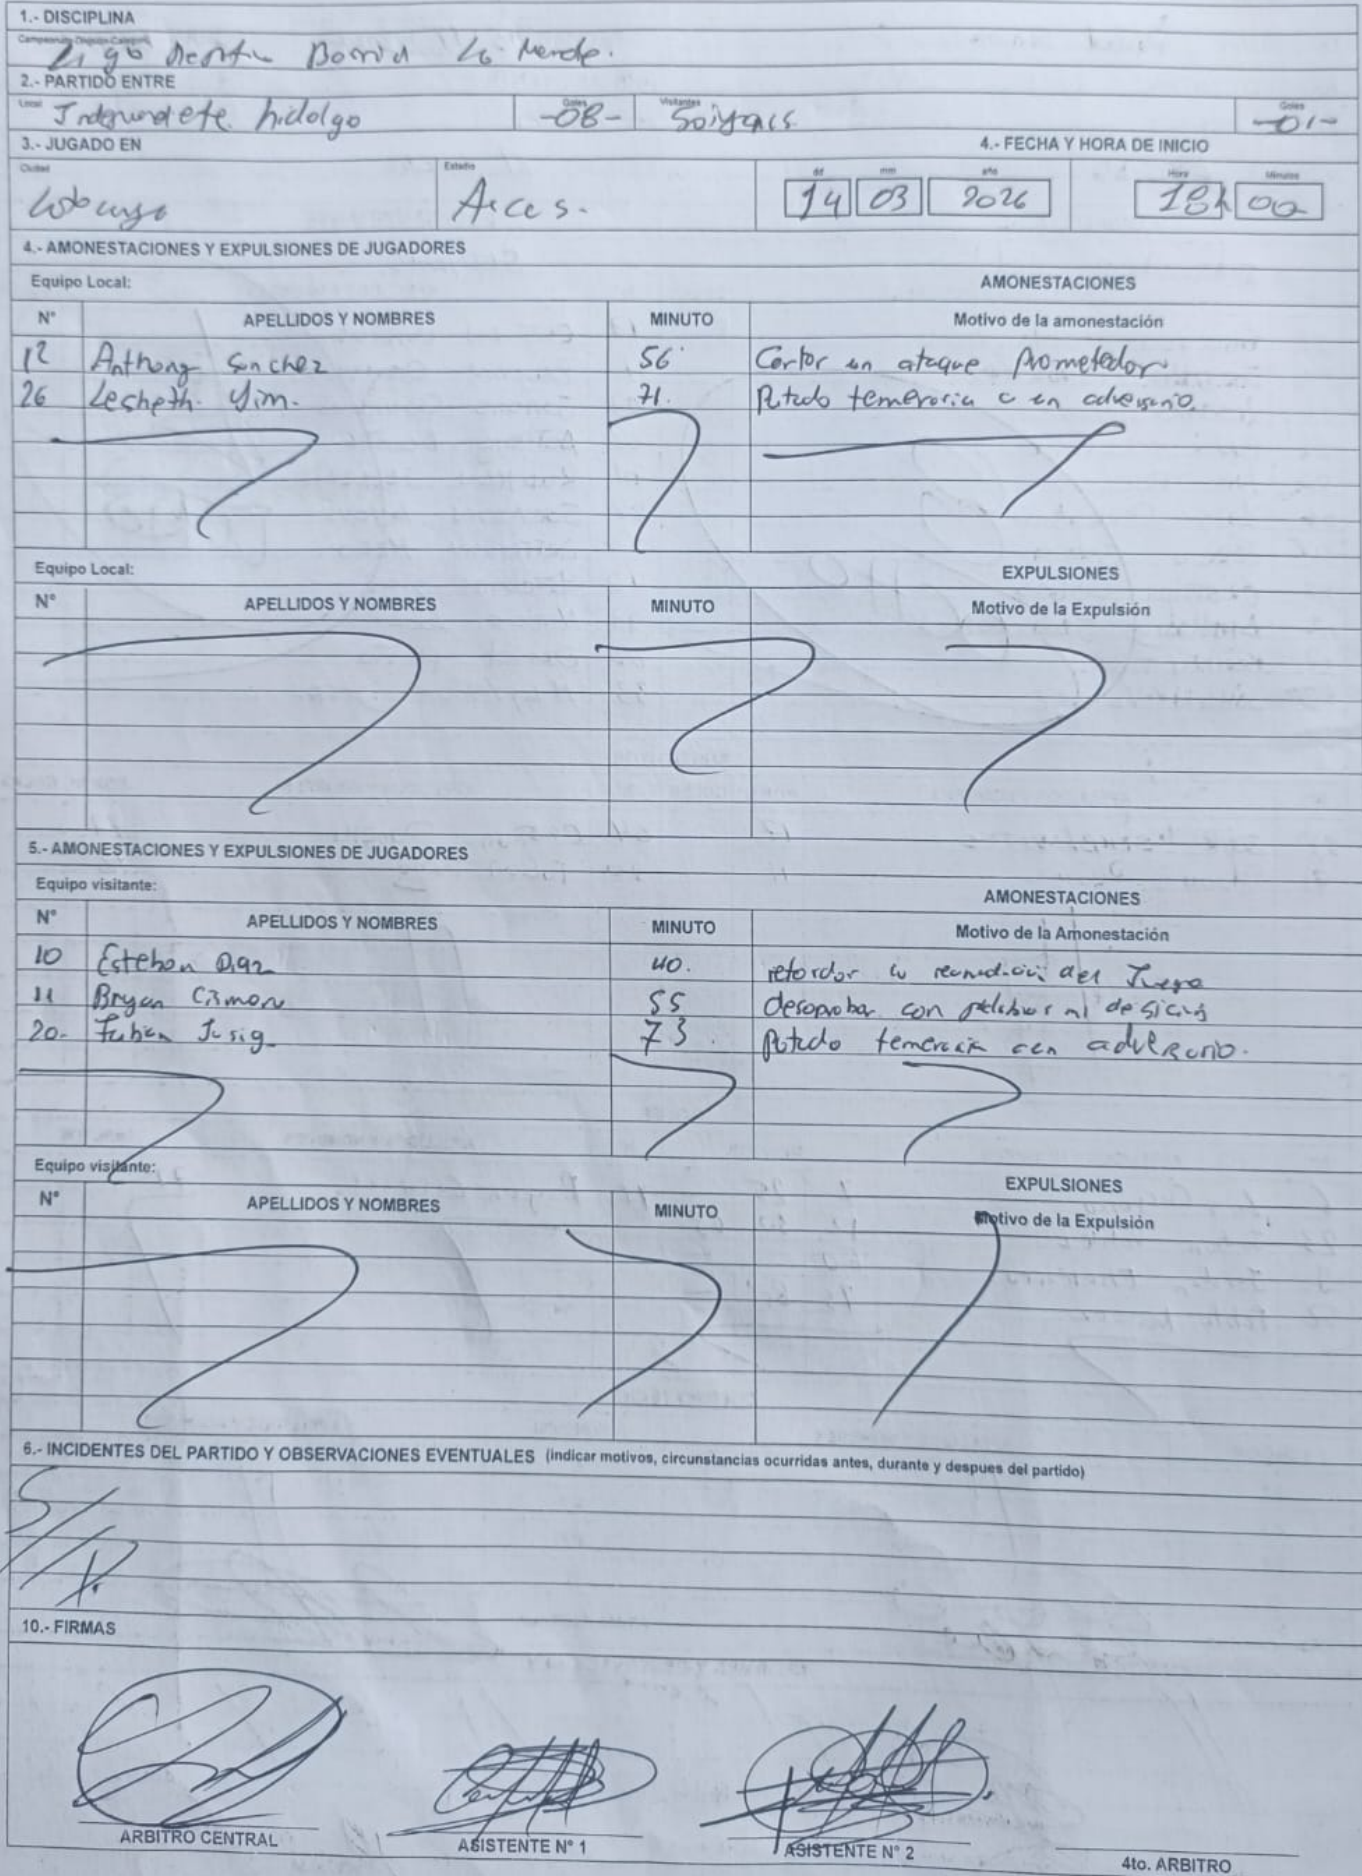 1.- DISCIPLINA
Campeonato
Barrial La Merced.
2.- PARTIDO ENTRE
Local Goles Visitantes Goles
Independete hidalgo -08- -01-
3.- JUGADO EN 4.- FECHA Y HORA DE INICIO
Ciudad Estadio dd mm año Hora Minutos
Arcas. 14 03 2026 18h 00
4.- AMONESTACIONES Y EXPULSIONES DE JUGADORES
Equipo Local: AMONESTACIONES
N° APELLIDOS Y NOMBRES MINUTO Motivo de la amonestación
12 Anthony Sanchez 56' Cortar un ataque prometedor
26 71. temeraria a un adversario.
Equipo Local: EXPULSIONES
N° APELLIDOS Y NOMBRES MINUTO Motivo de la Expulsión
5.- AMONESTACIONES Y EXPULSIONES DE JUGADORES
Equipo visitante: AMONESTACIONES
N° APELLIDOS Y NOMBRES MINUTO Motivo de la Amonestación
10 Esteban Diaz 40. retardar la del Juego
11 Bryan 55 desaprobar con
20. Fabian 73 temeraria adversario.
Equipo visitante: EXPULSIONES
N° APELLIDOS Y NOMBRES MINUTO Motivo de la Expulsión
6.- INCIDENTES DEL PARTIDO Y OBSERVACIONES EVENTUALES (indicar motivos, circunstancias ocurridas antes, durante y despues del partido)
10.- FIRMAS
ARBITRO CENTRAL ASISTENTE N° 1 ASISTENTE N° 2 4to. ARBITRO